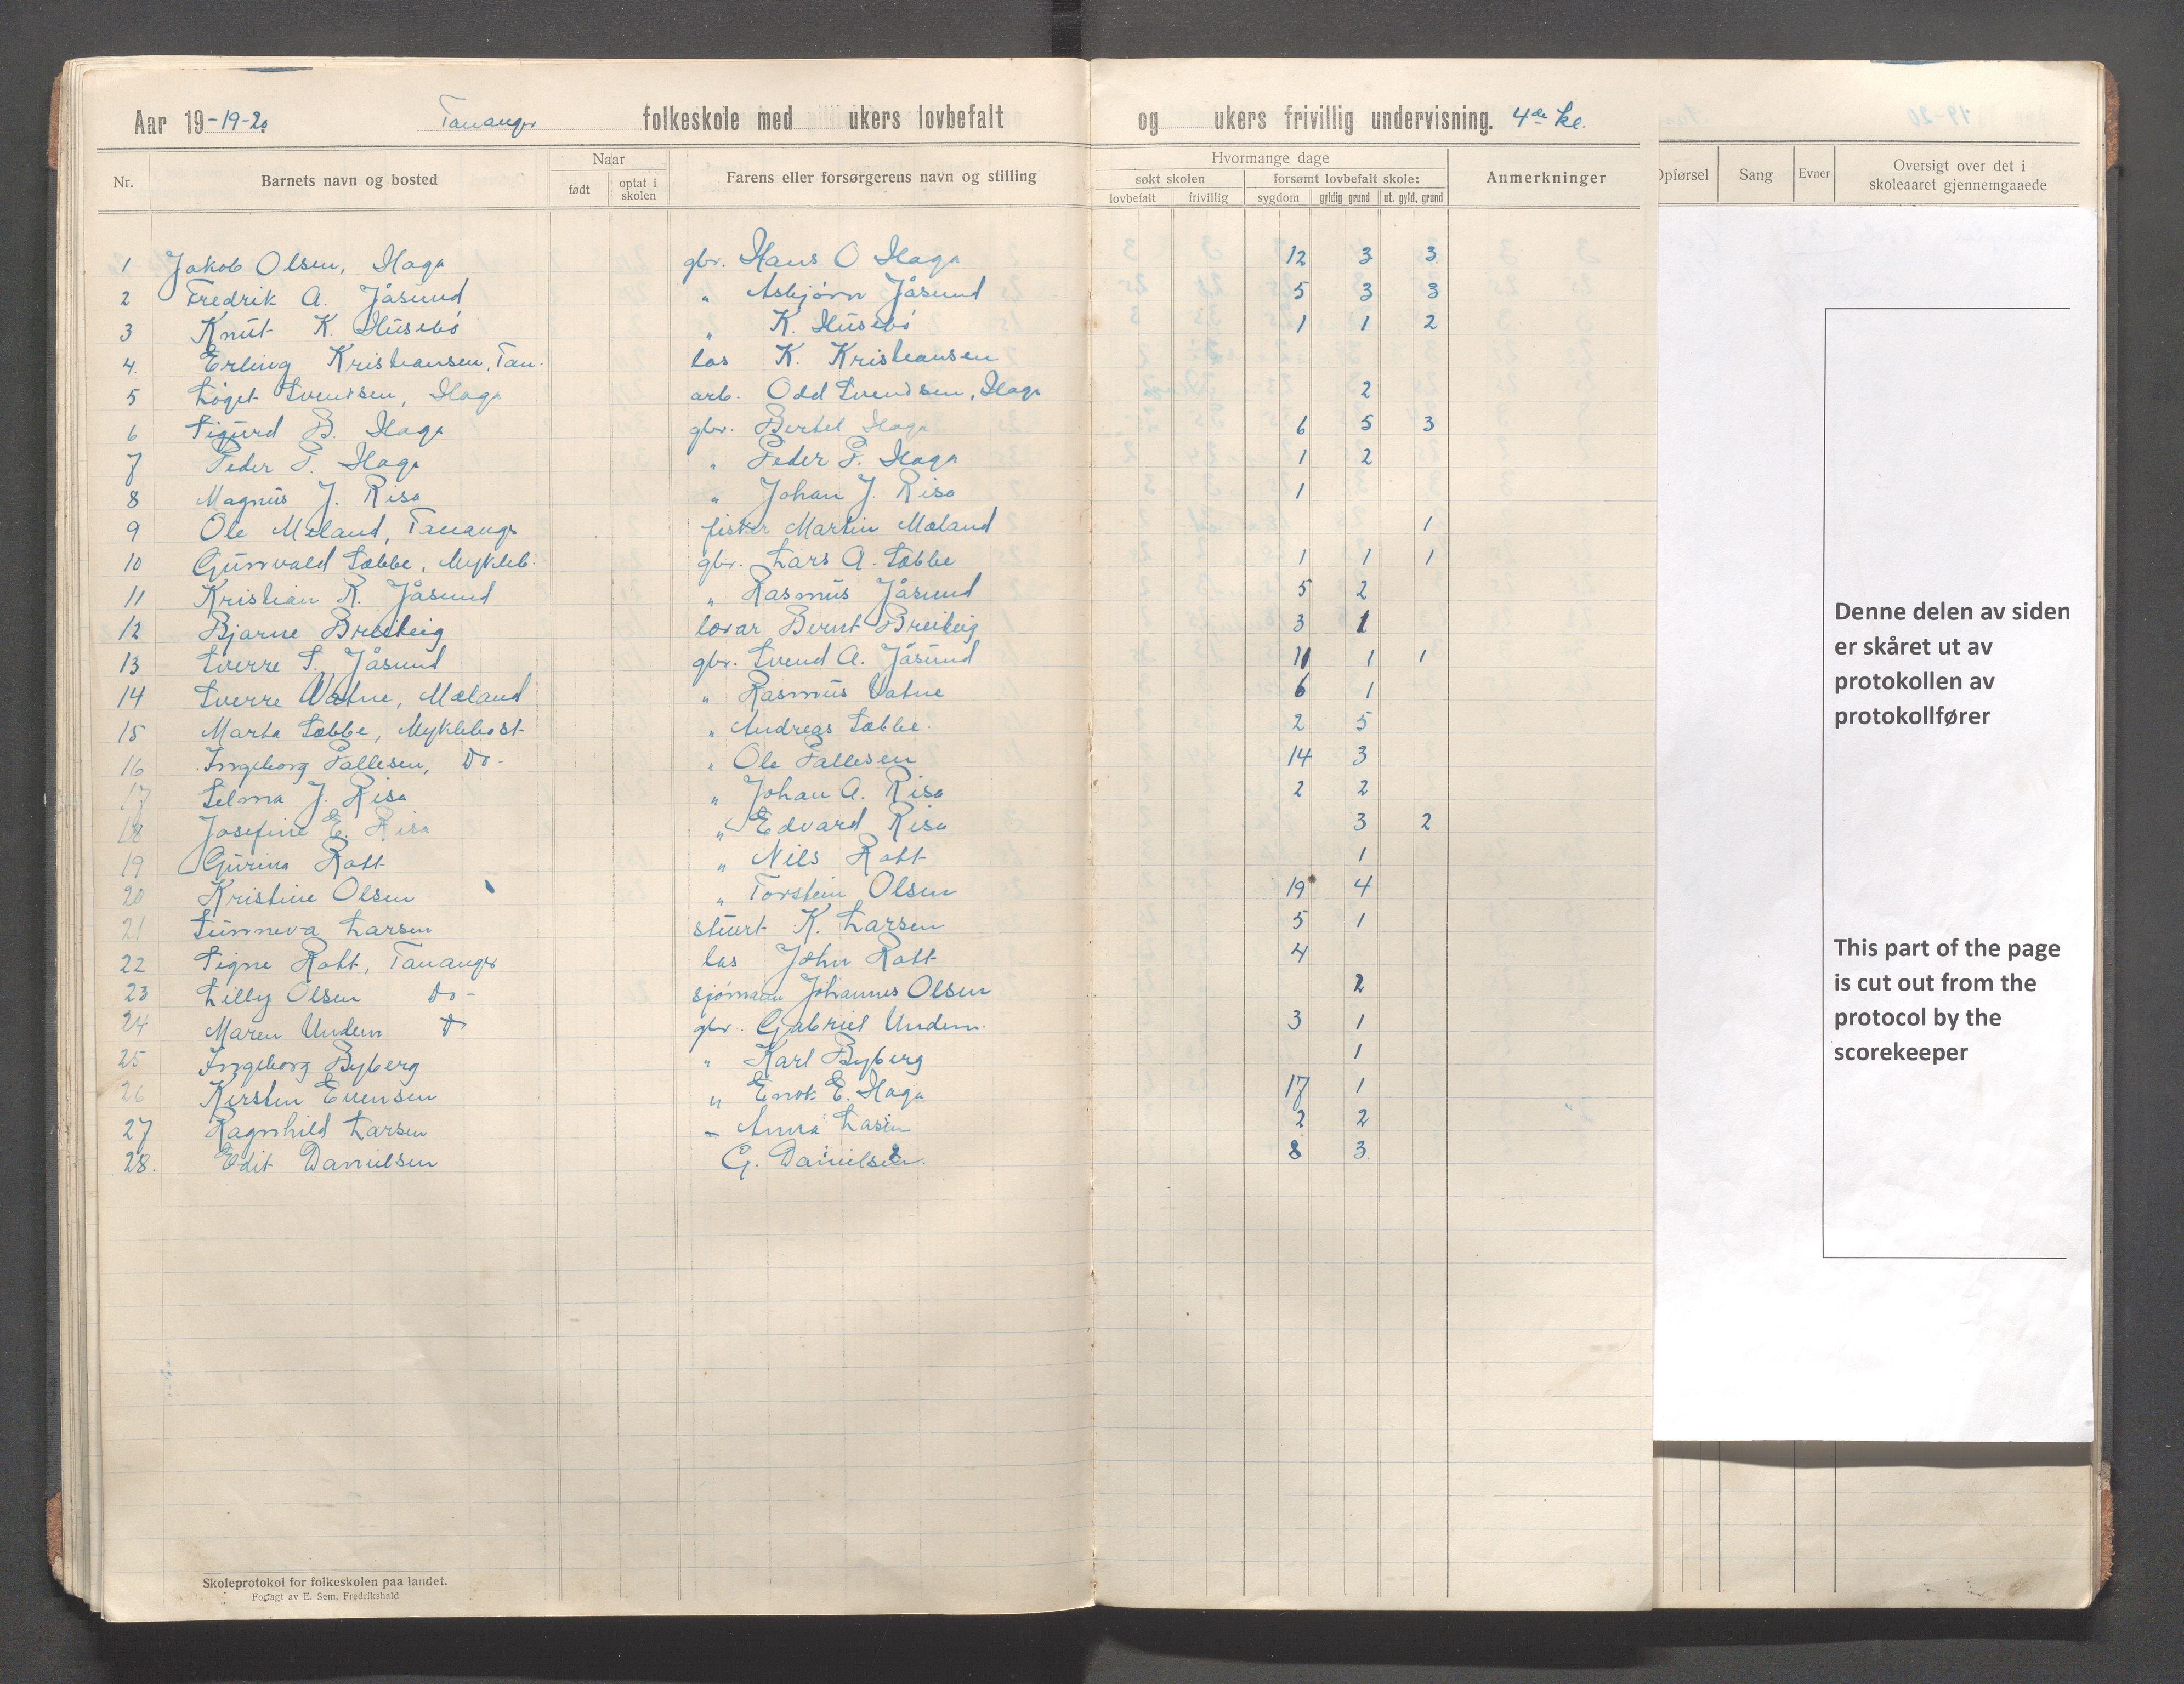 Aar 19-19-20 Tananger folkeskole med ukers lovbefalt og ukers frivillig undervisning. 4de kl.
Nr. Barnets navn og bosted Naar født optat i skolen Farens eller forsørgerens navn og stilling Hvormange dage søkt skolen lovbefalt frivillig forsømt lovbefalt skole: sygdom gyldig grund ut. gyld. grund Anmerkninger Opførsel Sang Evner Oversigt over det i skoleaaret gjennemgaaede
1 Jakob Olsen, Haga gbr. Hans O Haga 12 3 3
2 Fredrik A. Jåsund " Asbjørn Jåsund 5 3 3
3 Knut K. Husebö " K. Husebö 1 1 2
4. Erling Kristiansen, Tan. los K. Kristiansen
5 Löget Svendsen, Haga arb. Odd Svendsen, Haga 2
6 Sigurd B. Haga gbr. Bertel Haga 6 5 3
7 Peder P. Haga " Peder P. Haga 1 2
8 Magnus J. Risa " Johan J. Risa 1
9 Ole Meland, Tananger fisker Martin Mæland 1
10 Gunvald Sæbbe, Mykleb. gbr. Lars A. Sæbbe 1 1 1
11 Kristian R. Jåsund " Rasmus Jåsund 5 2
12 Bjarne Breiteig Bernt Breiteig 3 1
13 Sverre S. Jåsund gbr. Svend A. Jåsund 11 1 1
14 Sverre Vatne, Mæland " Rasmus Vatne 6 1
15 Marta Sæbbe, Myklebost " Andreas Sæbbe. 2 5
16 Ingeborg Pallesen, Do- " Ole Pallesen 14 3
17 Selma J. Risa " Johan A. Risa 2 2
18 Josefine E. Risa " Edvard Risa 3 2
19 Gurina Rott " Nils Rott 1
20 Kristine Olsen " Torstein Olsen 19 4
21 Sunneva Larsen stuert K. Larsen 5 1
22 Signe Rott, Tananger los John Rott 4
23 Lilly Olsen Do- sjömann Johannes Olsen 2
24 Maren Undem D- gbr. Gabriel Undem. 3 1
25 Ingeborg Byberg " Karl Byberg 1
26 Kirsten Evensen " Enok E. Haga 17 1
27 Ragnhild Larsen - Anna 2 2
28. Edit Danielsen G. Danielsen. 8 3
Denne delen av siden
er skåret ut av
protokollen av
protokollfører
This part of the page
is cut out from the
protocol by the
scorekeeper
Skoleprotokol for folkeskolen paa landet.
Forlagt av E. Sem, Fredrikshald